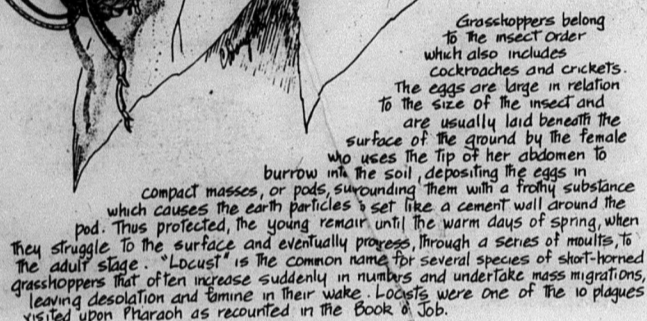 Grasshoppers belong
to the insect order
which also includes
cockroaches and crickets.
The eggs are large in relation
to the size of the insect and
are usually laid beneath the
surface of the ground by the female
who uses the tip of her abdomen to
burrow into the soil, depositing the eggs in
compact masses, or pods, surrounding them with a frothy substance
which causes the earth particles to set like a cement wall around the
pod. Thus protected, the young remain until the warm days of spring, when
they struggle to the surface and eventually progress, through a series of moults, to
the adult stage. "Locust" is the common name for several species of short-horned
grasshoppers that often increase suddenly in numbers and undertake mass migrations,
leaving desolation and famine in their wake. Locusts were one of the 10 plagues
visited upon Pharaoh as recounted in the Book of Job.